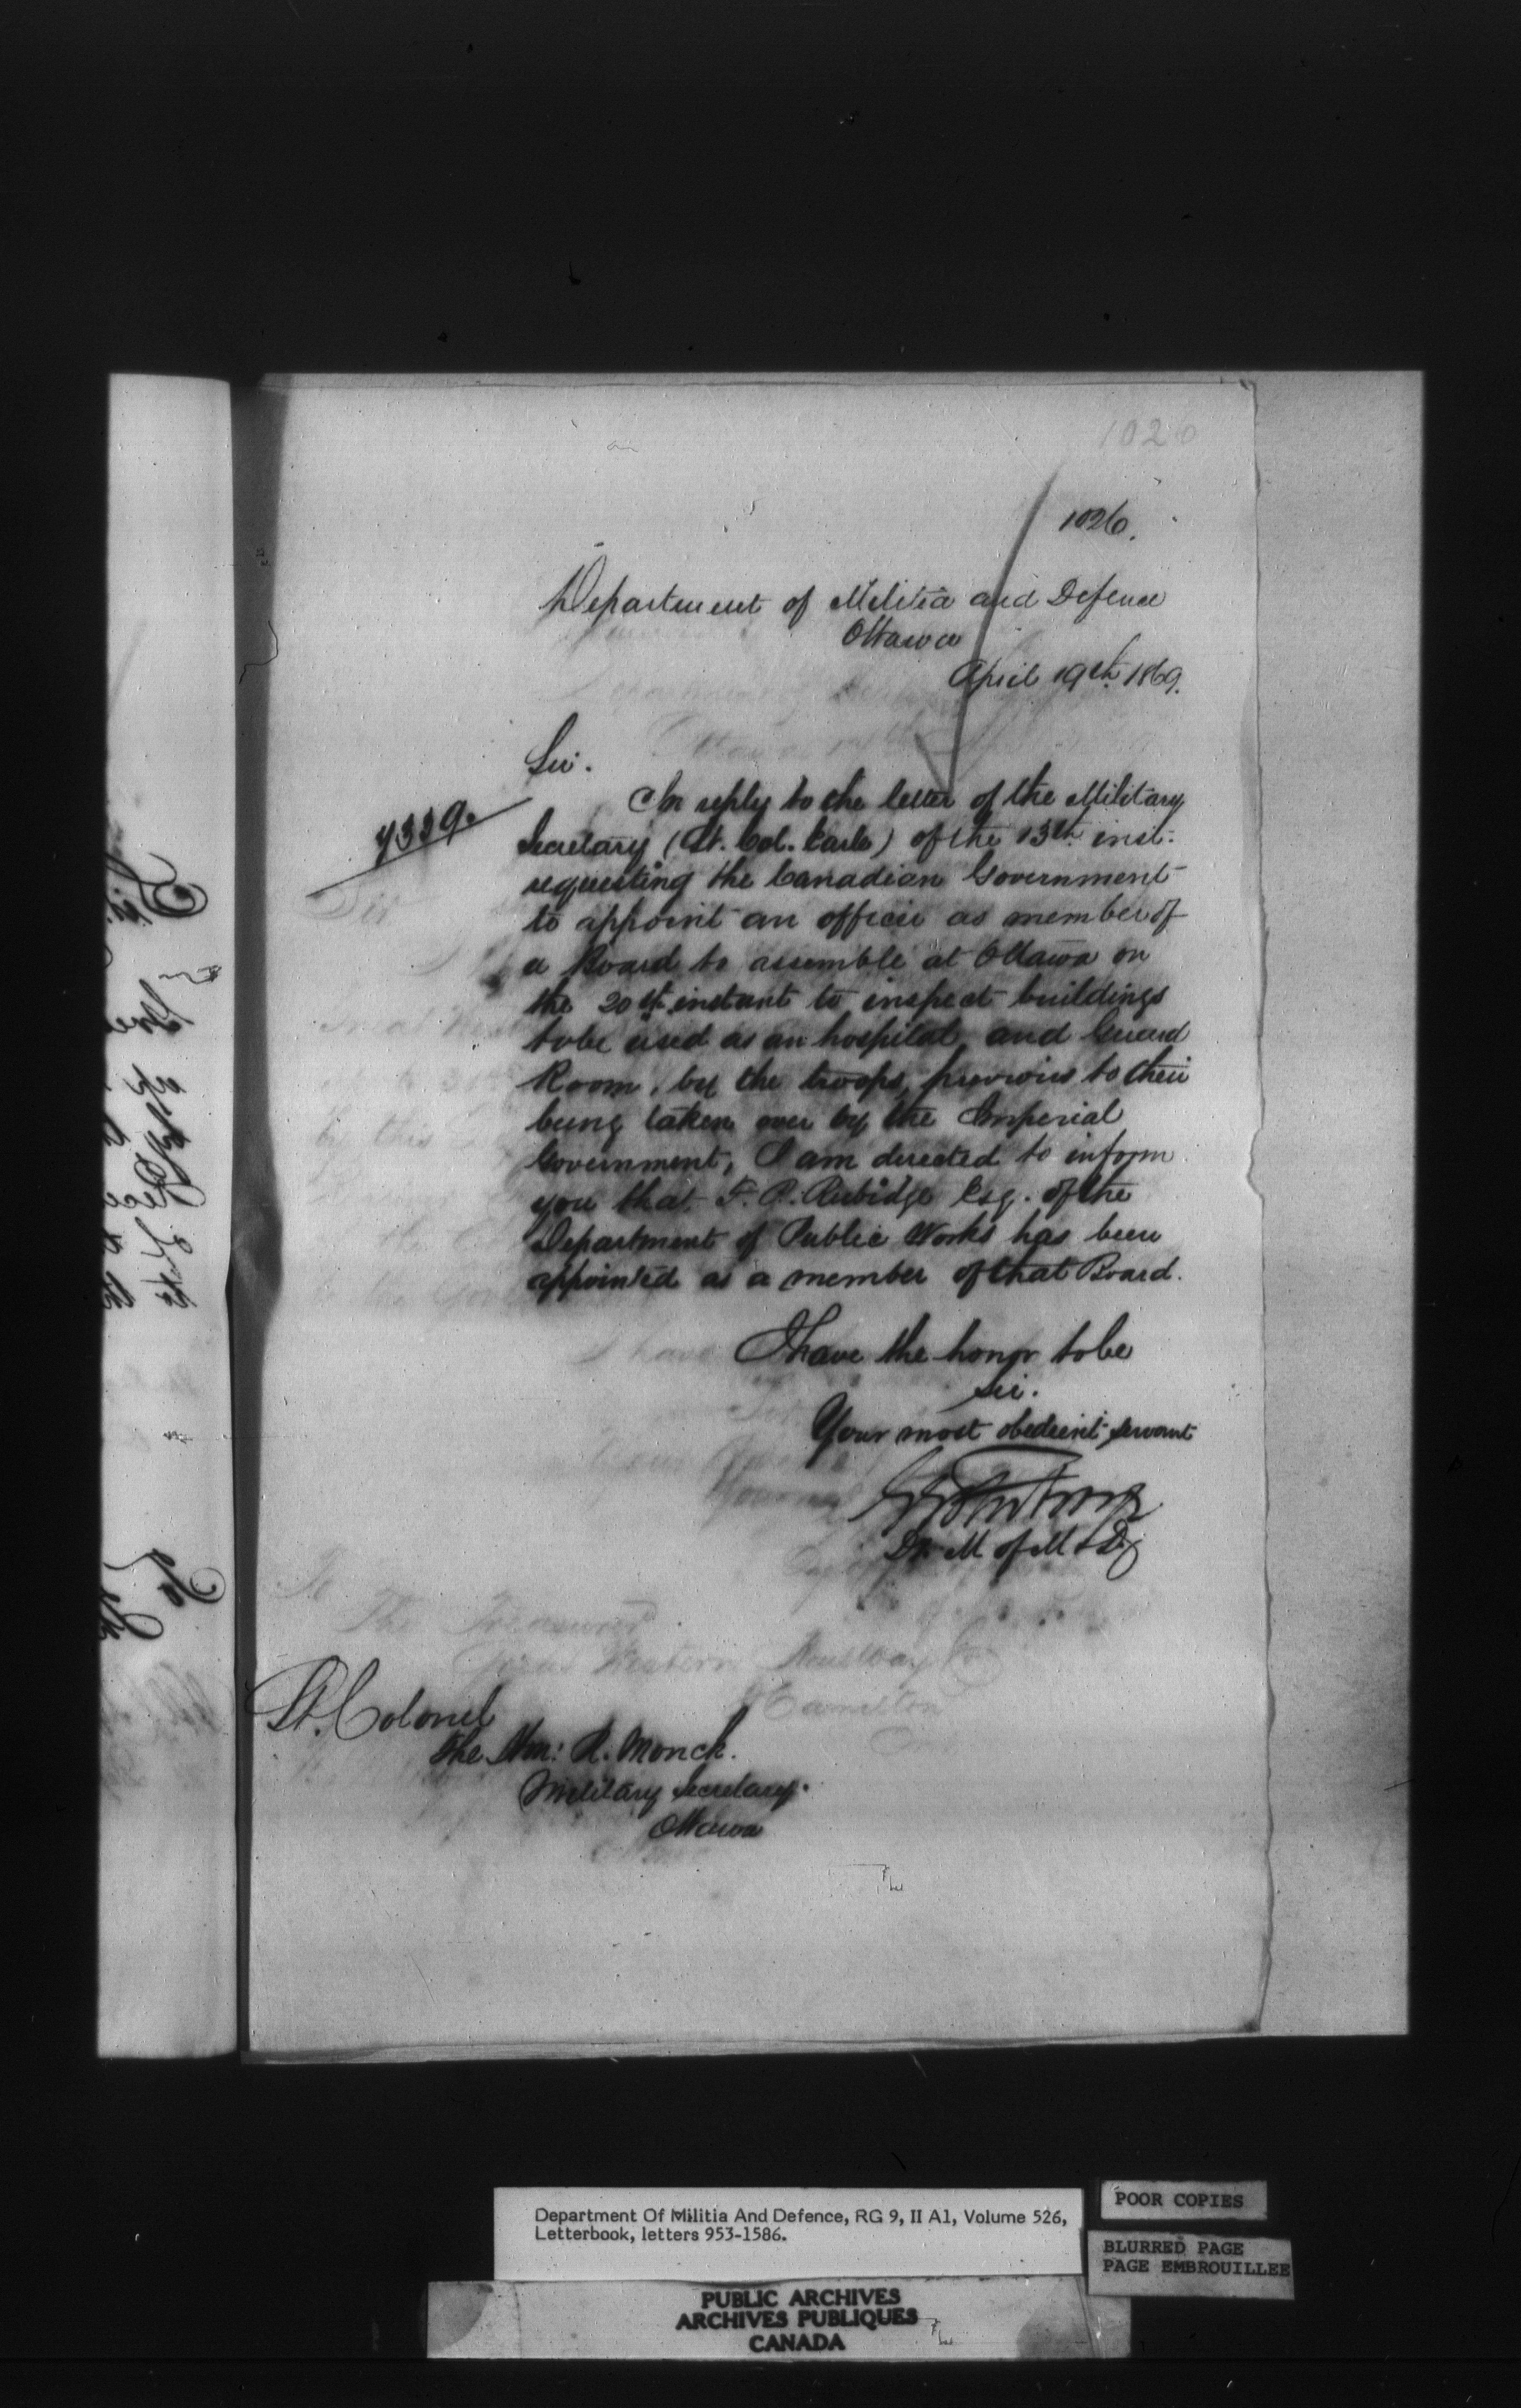 1020
1026.
Department of Militia and Defence
Ottawa
April 19th 1869.
Sir.
In reply to the letter of the Military
Secretary (Lt. Col. Earle) of the 13th inst.
requesting the Canadian Government
to appoint an officer as member of
a Board to assemble at Ottawa on
the 20th instant to inspect buildings
to be used as an hospital, and Guard
Room, by the troops, previous to their
being taken over by the Imperial
Government, I am directed to inform
you that F. P. Rubidge Esq. of the
Department of Public Works has been
appointed as a member of that Board.
I have the honor to be
Sir.
Your most obedient servant
D. M of M & D
Lt. Colonel
The Hon: R. Monck.
Military Secretary.
Ottawa
To
The Treasurer
Great Western Railway Co
Hamilton
Department Of Militia And Defence, RG 9, II A1, Volume 526,
Letterbook, letters 953-1586.
POOR COPIES
BLURRED PAGE
PAGE EMBROUILLEE
PUBLIC ARCHIVES
ARCHIVES PUBLIQUES
CANADA